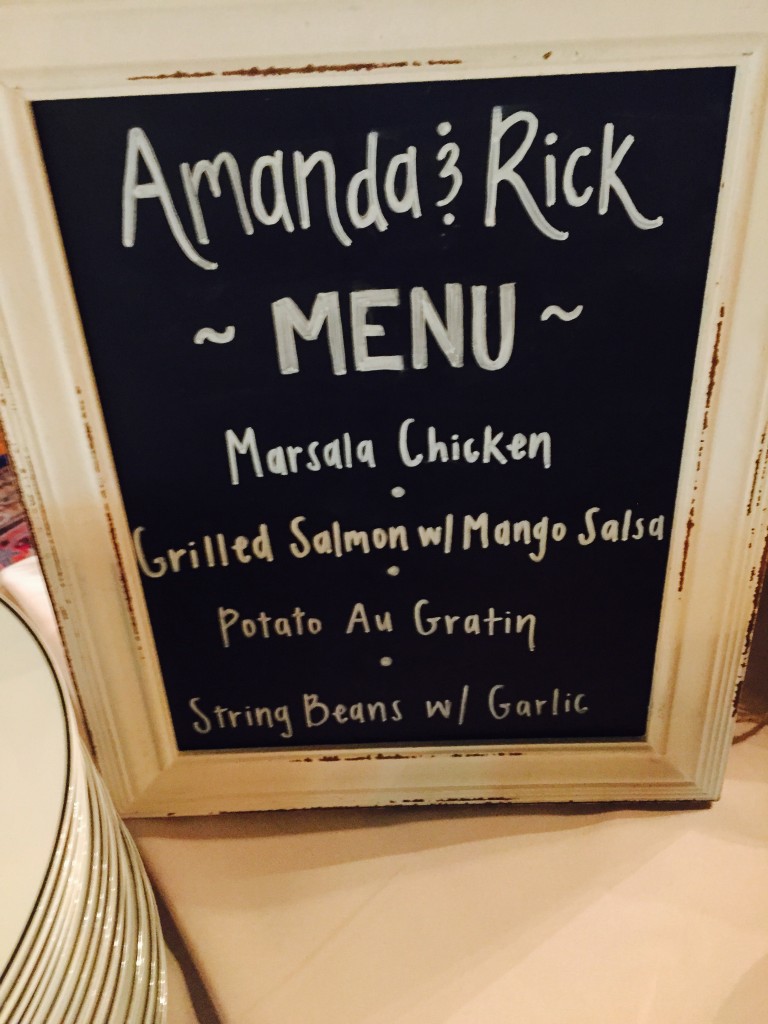 Amanda & Rick
~ MENU ~
Marsala Chicken
•
Grilled Salmon w/ Mango Salsa
•
Potato Au Gratin
•
String Beans w/ Garlic